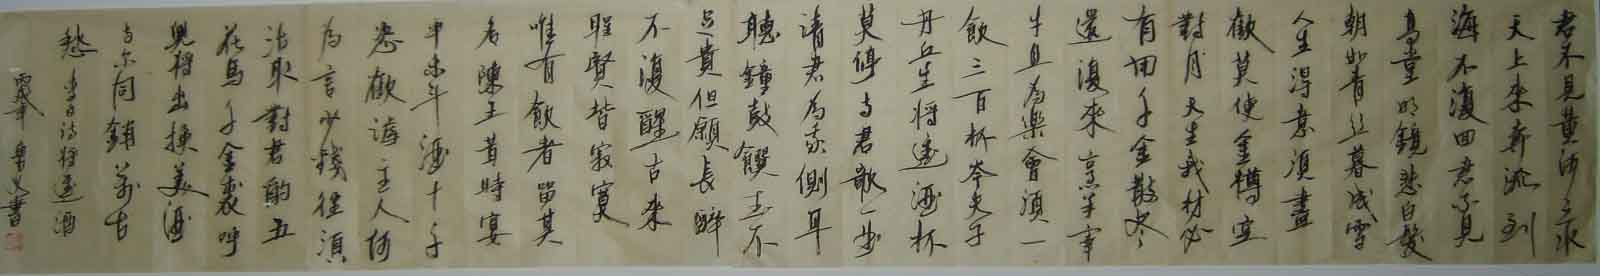 君不見黄河之水
天上来奔流到
海不復回君不見
高堂明鏡悲白髮
朝如青丝暮成雪
人生得意須盡
歡莫使金樽空
對月天生我材必
有用千金散尽
還復來烹羊宰
牛且為樂會須一
飲三百杯岑夫子
丹丘生将進酒杯
莫停与君歌一曲
請君為我側耳
聽鐘鼓饌玉不
足貴但願長醉
不復醒古来
聖賢皆寂寞
唯有飲者留其
名陳王昔時宴
平乐斗酒十千
恣歡謔主人何
為言少錢径須
沽取對君酌五
花馬千金裘呼
兒将出換美酒
与尔同銷萬古
愁 李白詩将進酒
書